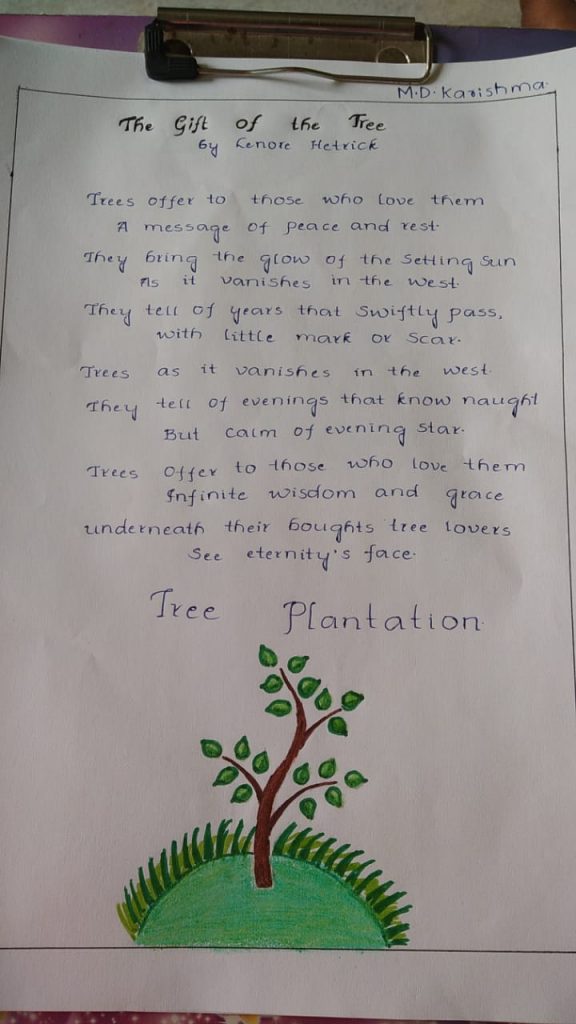 M.D. Karishma.
The Gift of the Tree
By Lenore Hetrick
Trees offer to those who love them
A message of peace and rest.
They bring the glow of the setting sun
As it vanishes in the west.
They tell of years that swiftly pass,
with little mark or scar.
Trees as it vanishes in the west.
They tell of evenings that know naught
But calm of evening star.
Trees offer to those who love them
Infinite wisdom and grace
underneath their boughts tree lovers
See eternity's face.
Tree Plantation